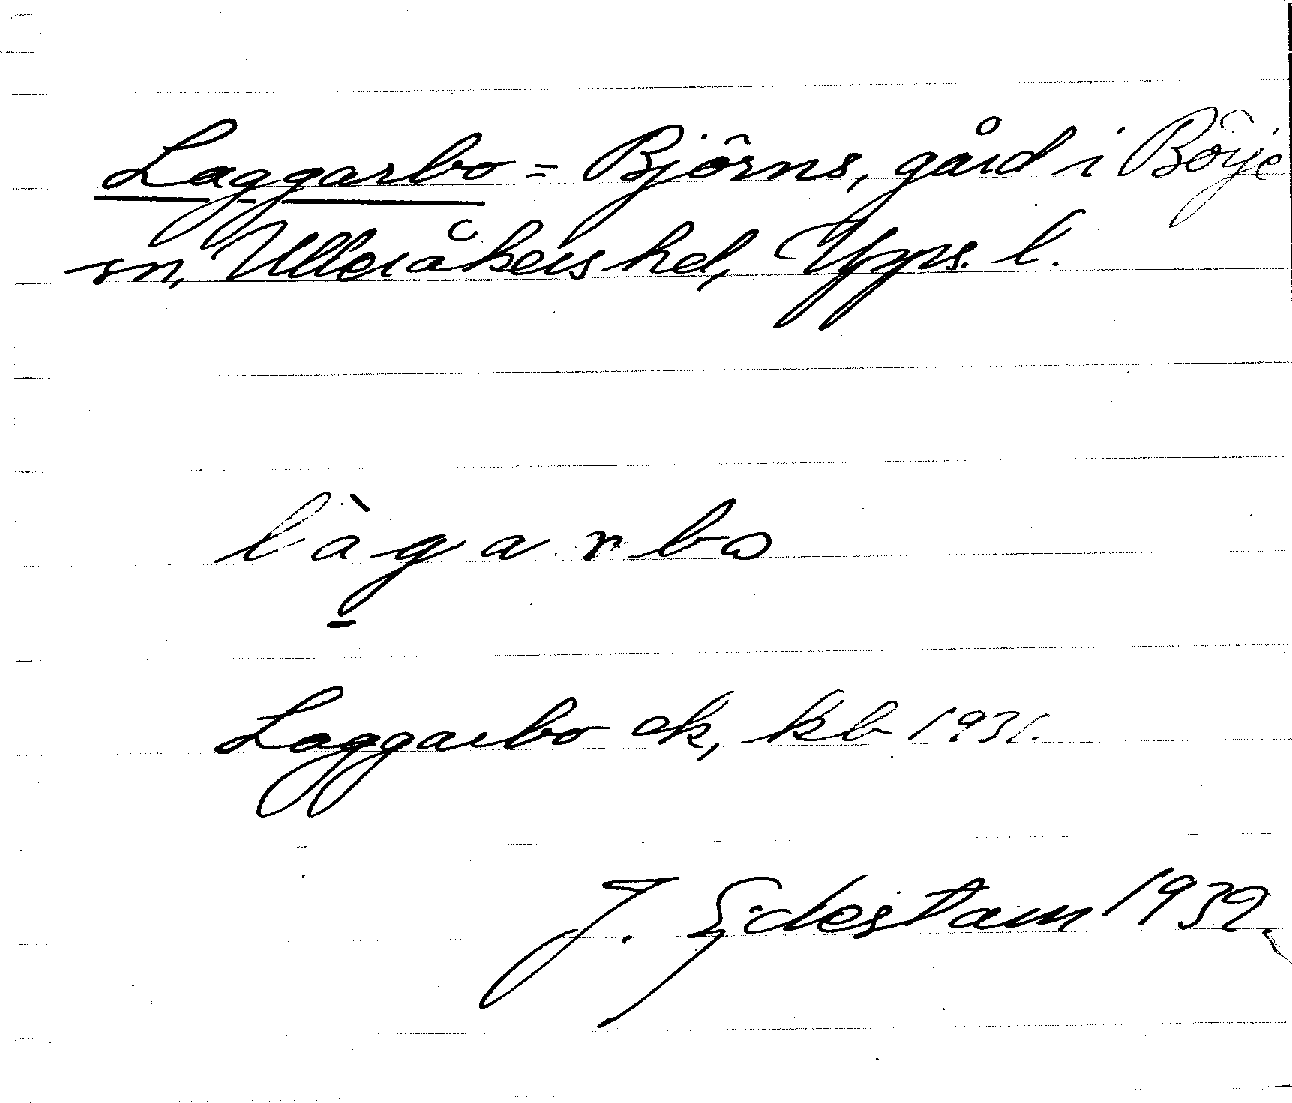 Laggarbo = Björns, gård i Börje
sn, Ulleråkers hd, Upps. l.
làg̱arbo
Laggarbo ek, kb 1931.
J. Edestam 1932.